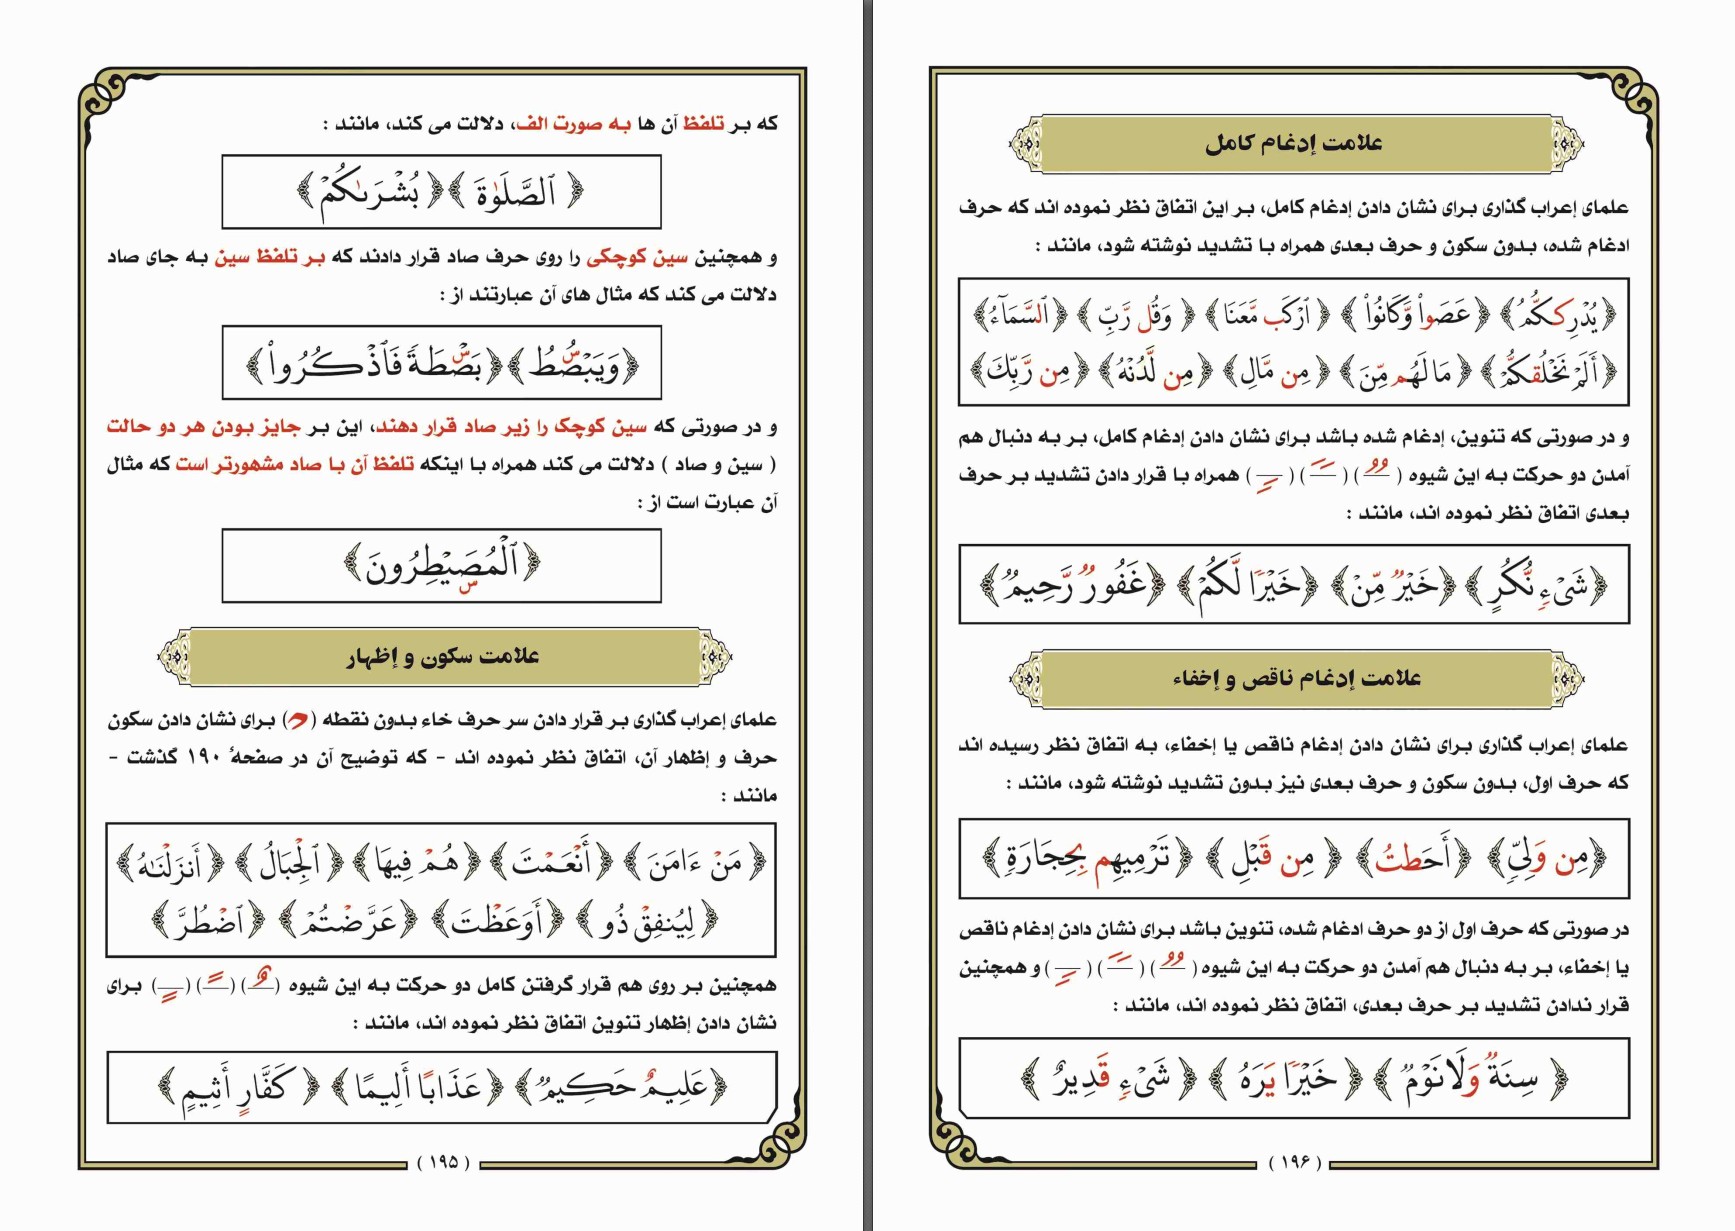 که بر تلفظ آن ها به صورت الف، دلالت می کند، مانند :
﴿ ٱلصَّلَوٰةَ ﴾ ﴿ بُشْرَىٰكُمْ ﴾
و همچنین سین کوچکی را روی حرف صاد قرار دادند که بر تلفظ سین به جای صاد
دلالت می کند که مثال های آن عبارتند از :
﴿وَيَبْصُۜطُ﴾ ﴿بَصْۜطَةً فَٱذْكُرُوا۟﴾
و در صورتی که سین کوچک را زیر صاد قرار دهند، این بر جایز بودن هر دو حالت
( سین و صاد ) دلالت می کند همراه با اینکه تلفظ آن با صاد مشهورتر است که مثال
آن عبارت است از :
﴿ٱلْمُصَۣيْطِرُونَ﴾
علامت سکون و إظهار
علمای إعراب گذاری بر قرار دادن سر حرف خاء بدون نقطه (ح) برای نشان دادن سکون
حرف و إظهار آن، اتفاق نظر نموده اند - که توضیح آن در صفحهٔ ۱۹۰ گذشت -
مانند :
﴿ مَنْ ءَامَنَ ﴾ ﴿ أَنْعَمْتَ ﴾ ﴿ هُمْ فِيهَا ﴾ ﴿ ٱلْجِبَالُ ﴾ ﴿ أَنزَلْنَٰهُ ﴾
﴿ لِيُنفِقْ ذُو ﴾ ﴿ أَوَعَظْتَ ﴾ ﴿ عَرَّضْتُمْ ﴾ ﴿ ٱضْطُرَّ ﴾
همچنین بر روی هم قرار گرفتن کامل دو حرکت به این شیوه (ـٌـ) (ـًـ) (ـٍـ) برای
نشان دادن إظهار تنوین اتفاق نظر نموده اند، مانند :
﴿عَلِيمٌ حَكِيمٌ﴾ ﴿ عَذَابًا أَلِيمًا ﴾ ﴿ كَفَّارٍ أَثِيمٍ ﴾
( ۱۹۵ )
علامت إدغام کامل
علمای إعراب گذاری برای نشان دادن إدغام کامل، بر این اتفاق نظر نموده اند که حرف
ادغام شده، بدون سکون و حرف بعدی همراه با تشدید نوشته شود، مانند :
﴿ يُدْرِككُّمُ ﴾ ﴿ عَصَوا۟ وَّكَانُوا۟ ﴾ ﴿ ٱرْكَب مَّعَنَا ﴾ ﴿ وَقُل رَّبِّ ﴾ ﴿ ٱلسَّمَآءُ ﴾
﴿ أَلَمْ نَخْلُقكُّمْ ﴾ ﴿ مَا لَهُم مِّنَ ﴾ ﴿ مِن مَّالِ ﴾ ﴿ مِن لَّدُنْهُ ﴾ ﴿ مِن رَّبِّكَ ﴾
و در صورتی که تنوین، إدغام شده باشد برای نشان دادن إدغام کامل، بر به دنبال هم
آمدن دو حرکت به این شیوه (ـࣱـ) (ـࣰـ) (ـࣲـ) همراه با قرار دادن تشدید بر حرف
بعدی اتفاق نظر نموده اند، مانند :
﴿ شَىْءࣲ نُّكُرٍ ﴾ ﴿ خَيْرࣱ مِّنْ ﴾ ﴿ خَيْرࣰا لَّكُمْ ﴾ ﴿ غَفُورࣱ رَّحِيمࣱ ﴾
علامت إدغام ناقص و إخفاء
علمای إعراب گذاری برای نشان دادن إدغام ناقص یا إخفاء، به اتفاق نظر رسیده اند
که حرف اول، بدون سکون و حرف بعدی نیز بدون تشدید نوشته شود، مانند :
﴿مِن وَلِىࣲّ﴾ ﴿ أَحَطتُ ﴾ ﴿ مِن قَبْلِ ﴾ ﴿ تَرْمِيهِم بِحِجَارَةࣲ ﴾
در صورتی که حرف اول از دو حرف ادغام شده، تنوین باشد برای نشان دادن إدغام ناقص
یا إخفاء، بر به دنبال هم آمدن دو حرکت به این شیوه (ـࣱـ) (ـࣰـ) (ـࣲـ) و همچنین
قرار ندادن تشدید بر حرف بعدی، اتفاق نظر نموده اند، مانند :
﴿ سِنَةࣱ وَلَا نَوْمࣱ ﴾ ﴿ خَيْرࣰا يَرَهُ ﴾ ﴿ شَىْءࣲ قَدِيرٌ ﴾
( ۱۹۶ )